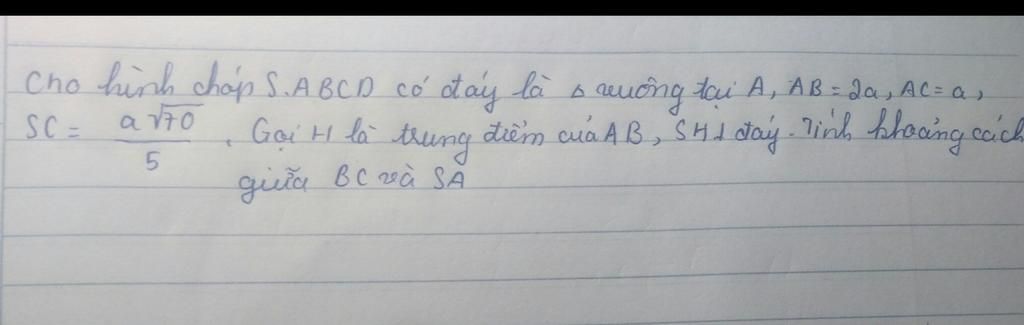 Cho hình chóp S.ABCD có đáy là Δ vuông tại A, AB = 2a, AC = a,
SC = a√70/5. Gọi H là trung điểm của AB, SH ⊥ đáy. Tính khoảng cách
giữa BC và SA